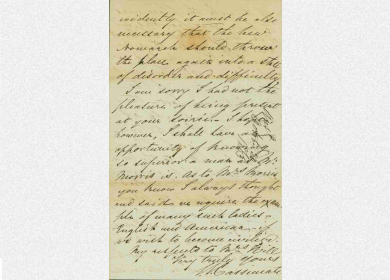 evidently it must be also
necessary that the new
Monarch should throw
the place again into a state
of disorder and difficulty
I am sorry I had not the
pleasure of being present
at your soirée. I hope
however, I shall have an
opportunity of knowing
so superior a man as Mr
Morris is. As to Mrs Morris
you know I always thought
and said we require the exam
ple of many such ladies -
English and American - if
we wish to become civilized.
My respects to Mrs Hill
Very truly yours